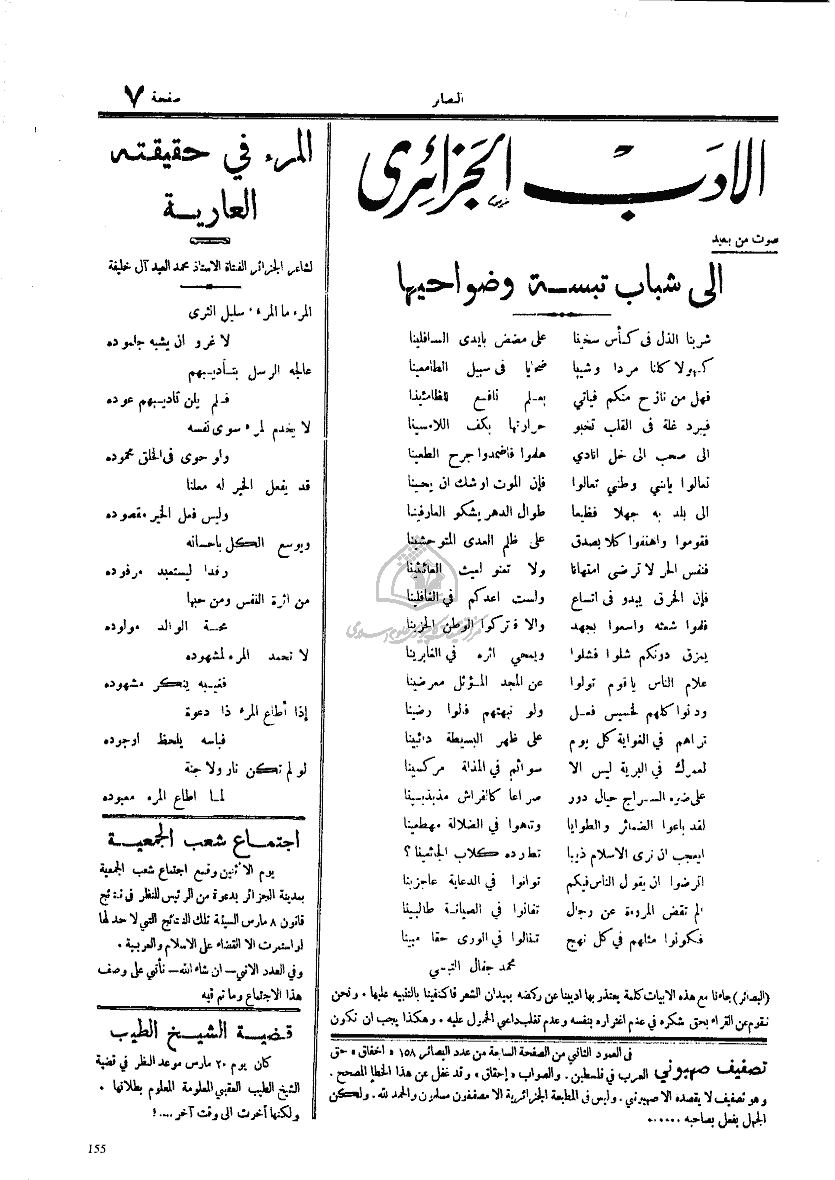 البصائر
صفحة ٧
الادب الجزائرى
صوت من بعيد
الى شباب تبسة وضواحيها
شربنا الذل فى كأس سخينا على مضض بايدى السافلينا
كهولا كلنا مردا وشيبا ضحايا فى سبيل الطامعينا
فهل من نازح منكم فياتي بعلم نافع للظامئينا
فيبرد غلة فى القلب تخبو حرارتها بكف اللامسينا
الى صحب الى خل انادي هلموا فاضمدوا جرح الطعينا
تعالوا يابني وطني تعالوا فإن الموت اوشك ان يحينا
الى بلد به جهلا فظيعا طوال الدهر يشكو العارفينا
فقوموا واهتفوا كلا بصدق على ظلم العدى المتوحشينا
فنفس الحر لا ترضى امتهانا ولا تعنو لعيث العائثينا
فإن الخرق يبدو فى اتساع ولست اعدكم في الغافلينا
فلموا شعثه واسعوا بجهد والا فتركوا الوطن الحزينا
يمزق دونكم شلوا فشلوا ويمحي اثره في الغابرينا
علام الناس ياقوم تولوا عن المجد المؤثل معرضينا
ودنوا كلهم لخسيس فعل ولو نبهتهم قالوا رضينا
تراهم في الغواية كل يوم على ظهر البسيطة دائبينا
لعمرك في البرية ليس الا سوائم في المذلة مركسينا
على ضوء السراج حيال دور صراعا كالفراش مذبذبينا
لقد باعوا الضمائر والطوايا وتاهوا في الضلالة مهطعينا
ايعجب ان نرى الاسلام ذيبا تطارده كلاب الجاثمينا ؟
اترضوا ان يقول الناس فيكم توانوا في الدعاية عاجزينا
الم تقض المروءة عن رجال تفانوا في الصيانة طالبينا
فكونوا مثلهم في كل نهج تنالوا في الورى حقا مبينا
محمد جفال التبسي
(البصائر) جاءنا مع هذه الابيات كلمة يعتذر بها اديبنا عن ركضه بميدان الشعر فاكتفينا بالتنبيه عليها . ونحن
نقوم عن القراء بحق شكره في عدم اغتراره بنفسه وعدم تقلب داعي الخمول عليه . وهكذا يجب ان نكون
تصفيف صهيوني
فى العمود الثاني من الصفحة السابعة من عدد البصائر ١٥٨ « اخفاق » حق
العرب في فلسطين . والصواب « إحقاق » وقد غفل عن هذا الخطإ المصحح .
وهو تصفيف لا يقصده الا صهيوني . وليس فى المطبعة الجزائرية الا مصففون مسلمون والحمد لله . ولكن
الجهل يفعل بصاحبه ......
المرء في حقيقته
العارية
لشاعر الجزائر الفتاة الاستاذ محمد العيد آل خليفة
المرء ما المرء ، سليل الثرى
لا غرو ان يشبه جلموده
عالجه الرسل بتأديبهم
فلم يلن تاديبهم عوده
لا يخدم المرء سوى نفسه
ولو حوى فى الخلق محموده
قد يفعل الخير له معلنا
وليس فعل الخير مقصوده
ويوسع الكل باحسانه
رفدا ليستعبد مرفوده
من اثرة النفس ومن حبها
محبة الوالد مولوده
لا تحمد المرء لمشهوده
فغيبه ينكر مشهوده
إذا أطاع المرء ذا دعوة
فباسه يلحظ اوجوده
لو لم تكن نار ولا جنة
لما اطاع المرء معبوده
اجتماع شعب الجمعية
يوم الاثنين وقع اجتماع شعب الجمعية
بمدينة الجزائر بدعوة من الرئيس للنظر فى نتائج
قانون ٨ مارس السيئة تلك النتائج التي لا حد لها
لو استمرت الا القضاء على الاسلام والعربية .
وفى العدد الآتي — ان شاء الله — نأتي على وصف
هذا الاجتماع وما تم فيه
قضية الشيخ الطيب
كان يوم ٢٠ مارس موعد النظر في قضية
الشيخ الطيب العقبي المعلومة المعلوم بطلانها .
ولكنها أخرت الى وقت آخر .... !
155